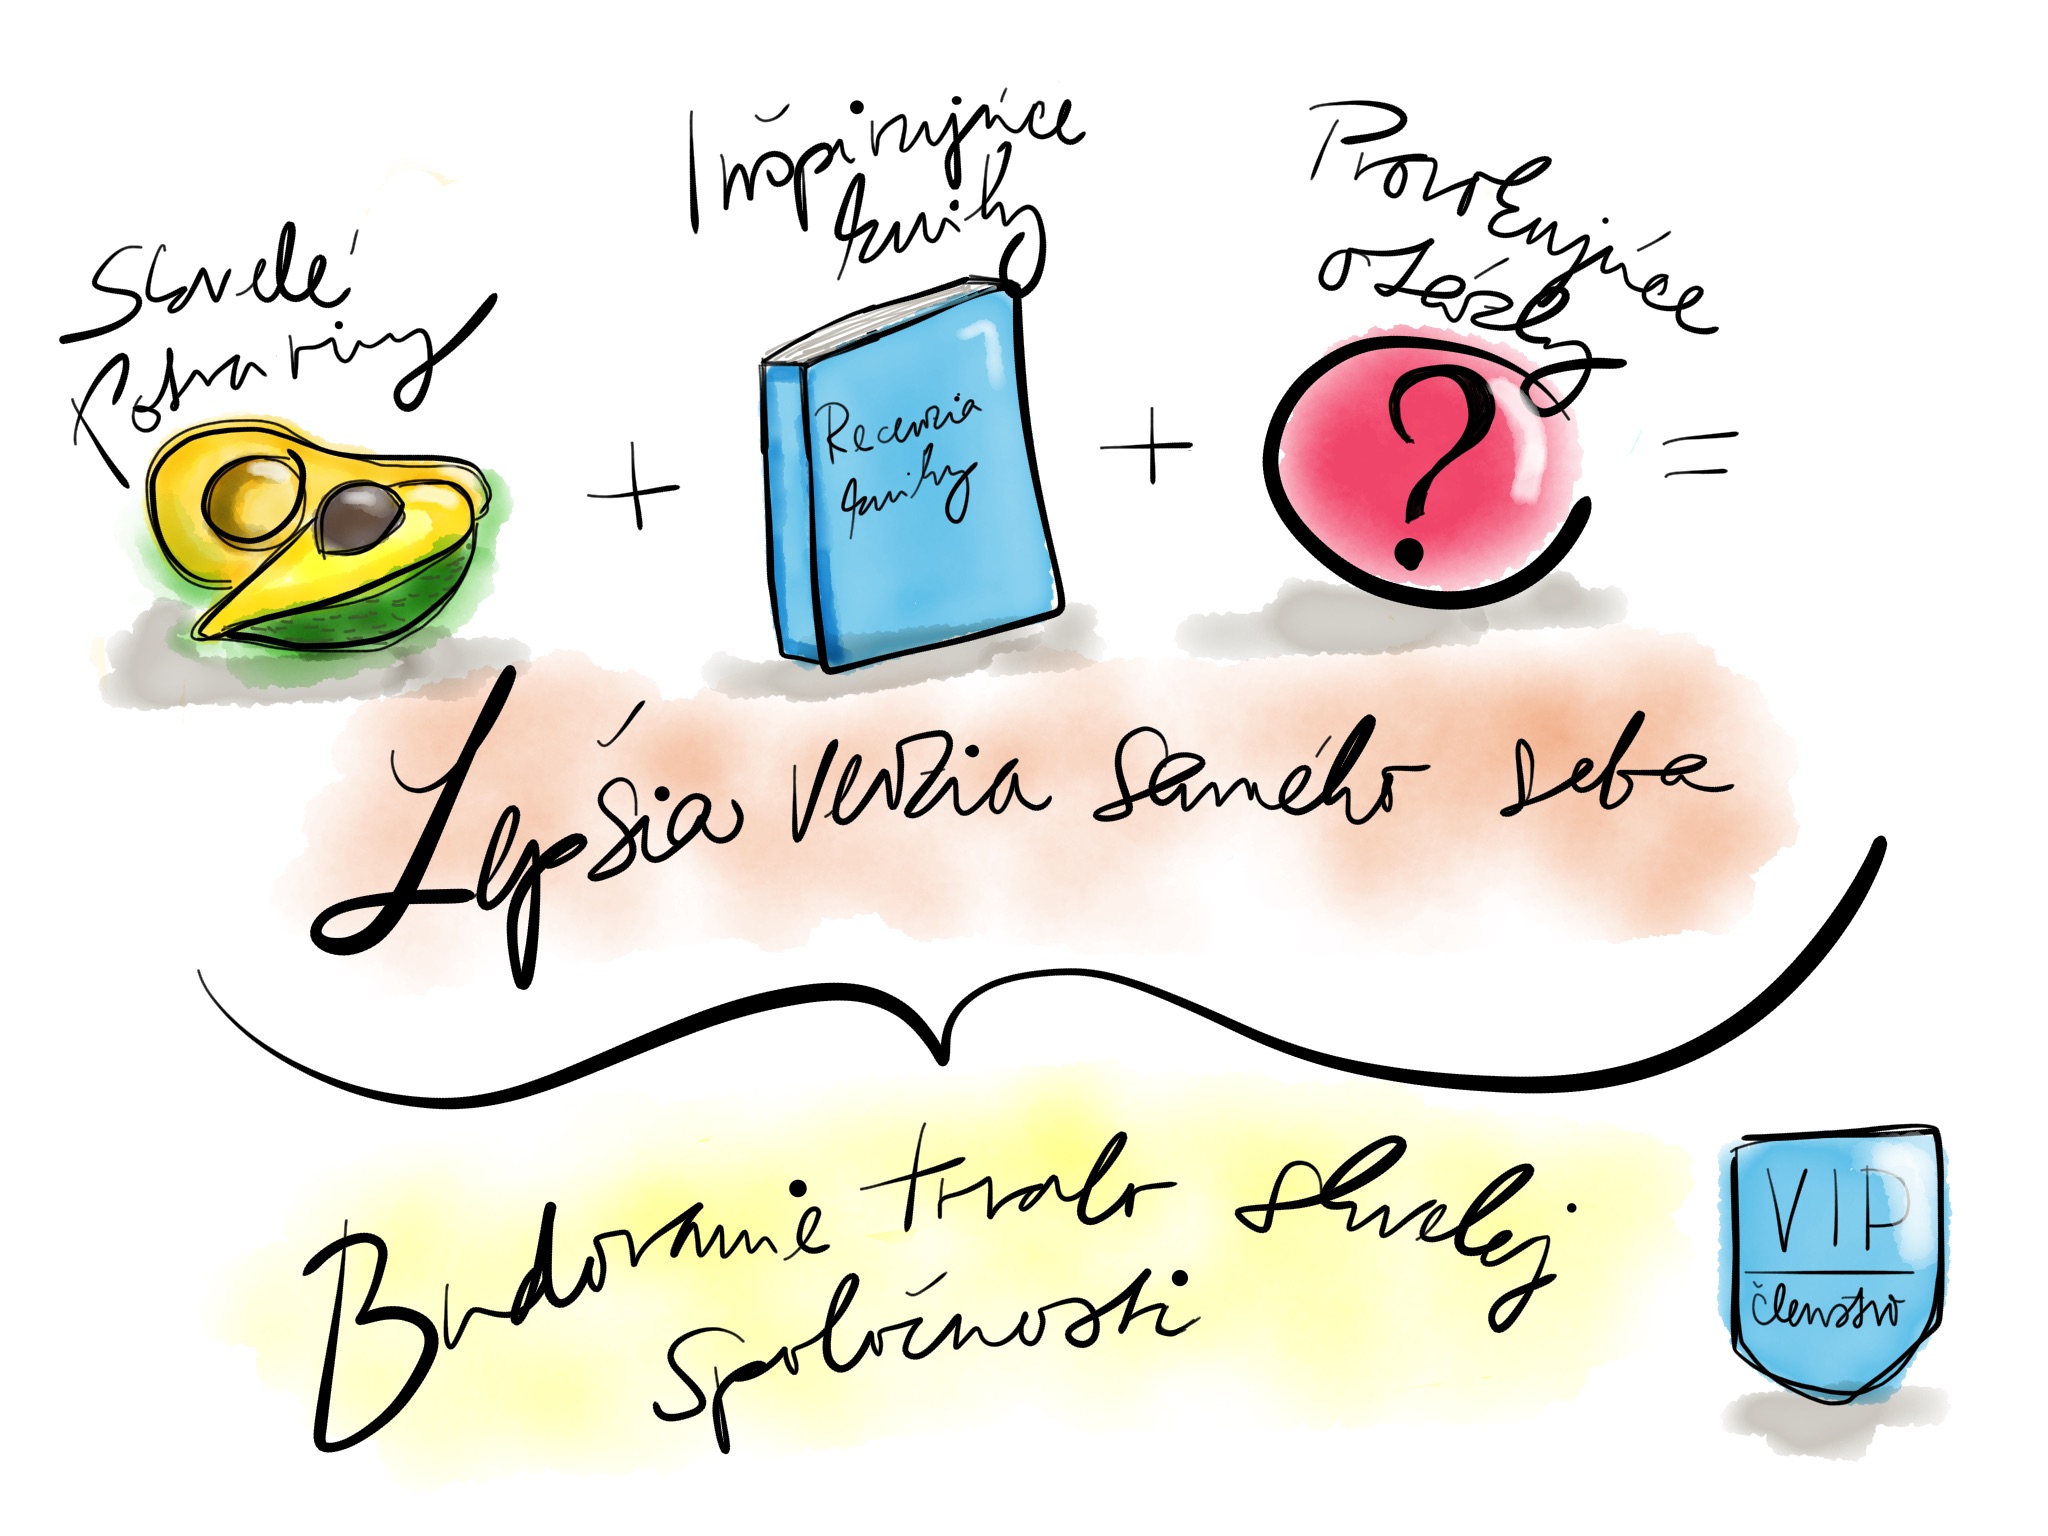 Skvelé
Potraviny
+
Inšpirujúce
knihy
Recenzia
knihy
+
Provokujúce
otázky
?
=
Lepšia verzia samého seba
Budovanie trvalo skvelej
spoločnosti
VIP
členstvo